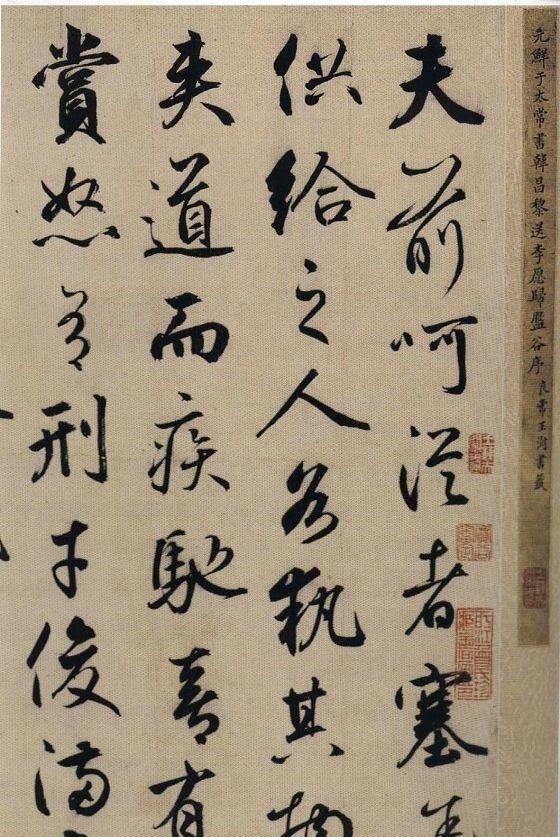 元鮮于太常書韓昌黎送李愿歸盤谷序 良常王澍書籤
夫前呵從者塞
供給之人各執其物
夾道而疾馳喜有
賞怒有刑才俊滿